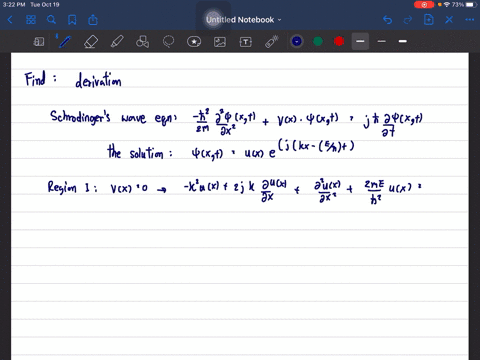 3:22 PM Tue Oct 19
73%
Untitled Notebook
Find : derivation
Schrodinger's wave eqn: -ħ²/2m ∂²ψ(x,t)/∂x² + V(x) · ψ(x,t) = jħ ∂ψ(x,t)/∂t
the solution : ψ(x,t) = u(x) e^(j(kx - (E/ħ)t)
Region I : V(x) = 0 → -k²u(x) + 2jk ∂u(x)/∂x + ∂²u(x)/∂x² + 2mE/ħ² u(x) =